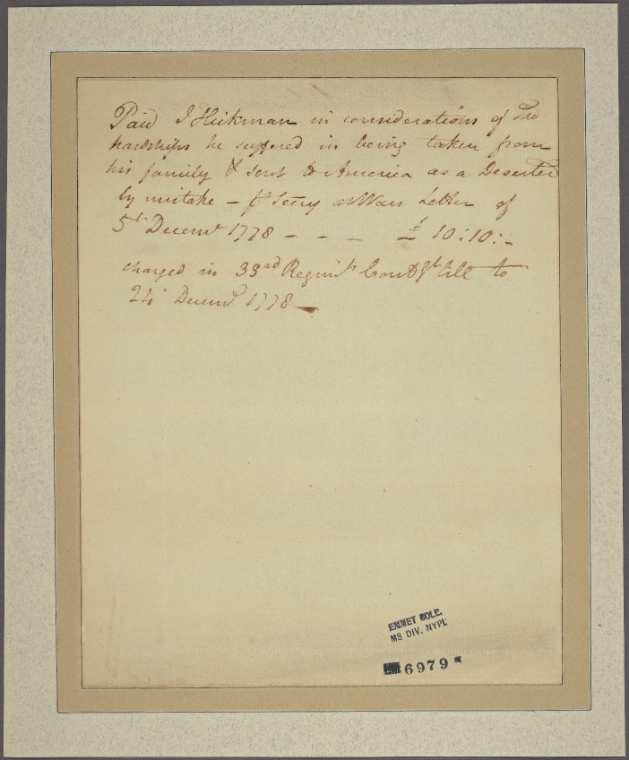 Paid J Hickman in considerations of the
hardships he suffered in being taken from
his family & sent to America as a Deserter
by mistake – pr Secry at War Letter of
5th Decemr 1778 – – – £ 10:10:–
charged in 33rd Regimts till to
24 Decemr 1778 –
EMMET COLL.
MS DIV. NYPL
6979